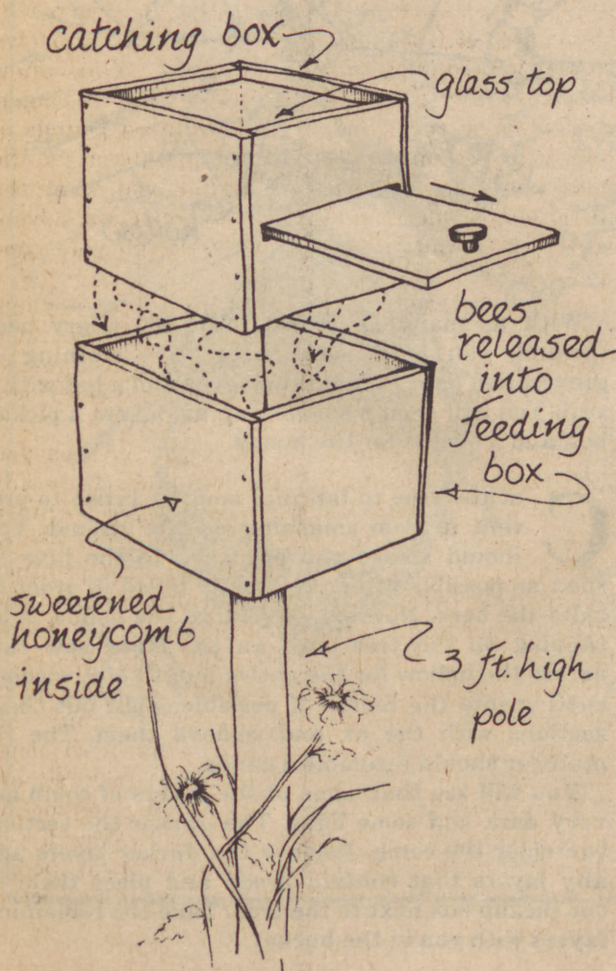 catching box
glass top
bees
released
into
feeding
box
sweetened
honeycomb
inside
3 ft. high
pole